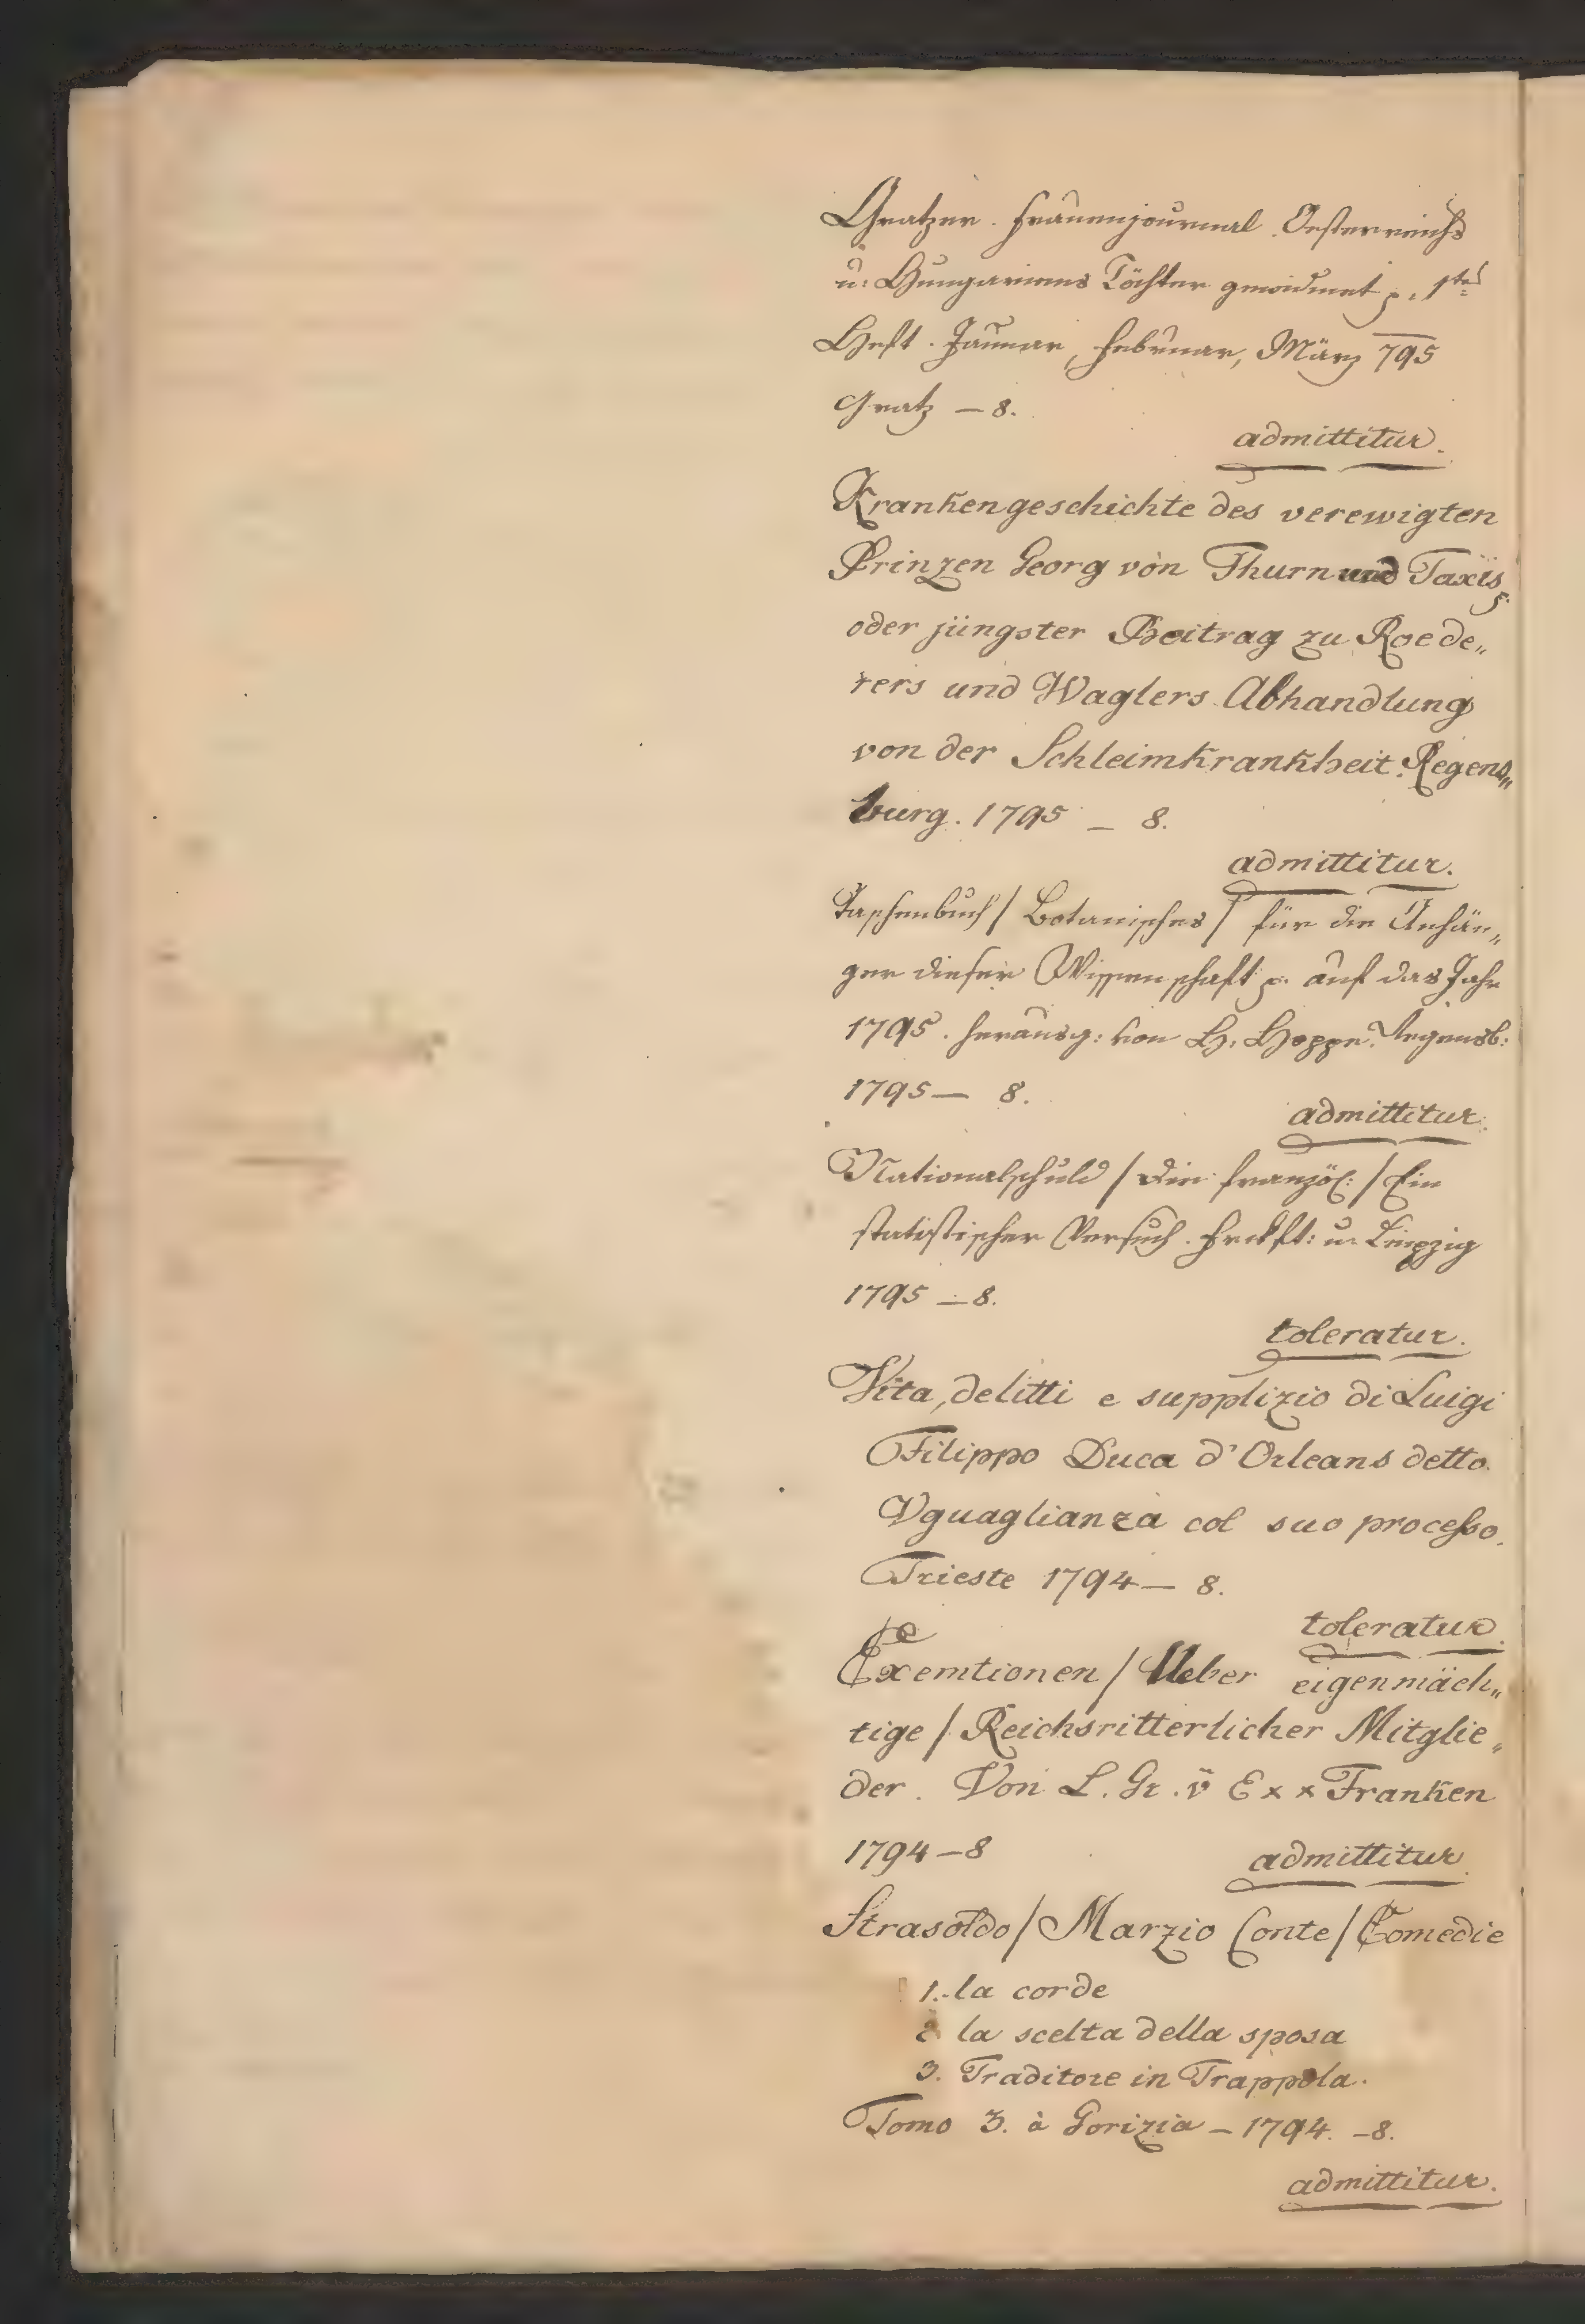 Gratzer. Frauenjournal Oesterreichs
u: Hungariens Töchter gewidmet p. 1tes
Heft. Jannar, Februar, März 795
Gratz – 8.
admittitur.
Krankengeschichte des verewigten
Prinzen Georg von Thurn und Taxis,
oder jüngster Beitrag zu Roede„
rers und Waglers Abhandlung
von der Schleimkrankheit. Regens„
burg. 1795 – 8.
admittitur.
Taschenbuch / Botanisches / für die Anhän„
ger dieser Wissenschaft p. auf das Jahr
1795. herausg: von H. Hoppe. Regensb:
1795 – 8.
admittitur.
Nationalschuld / die französ: / Ein
statistischer Versuch. Frckft: u. Leipzig
1795 – 8.
toleratur.
Vita, delitti e supplizio di Luigi
Filippo Duca d'Orleans detto
Vguaglianza col suo processo.
Trieste 1794 – 8.
toleratur.
Exemtionen / Ueber eigenmäch„
tige / Reichsritterlicher Mitglie„
der. Von L. Gr. v̄ E x x Franken
1794 – 8
admittitur.
Strasoldo / Marzio Conte / Comedie
1. la corde
2 la scelta della sposa
3. Traditore in Trappola.
Tomo 3. à Gorizia – 1794. – 8.
admittitur.